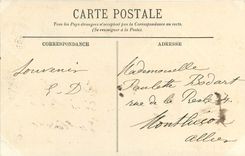 CARTE POSTALE
Tous les Pays étrangers n'acceptent pas la Correspondance au recto.
(Se renseigner à la Poste).
CORRESPONDANCE
ADRESSE
Souvenir
Mademoiselle
Paulette Bodart
rue de la
Montluçon
Allier